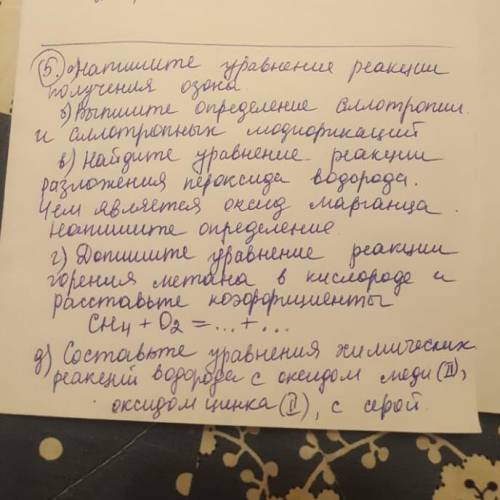 5. а) Напишите уравнение реакции
получения озона
б) Выпишите определение аллотропии
и аллотропных модификаций
в) Найдите уравнение реакции
разложения пероксида водорода.
Чем является оксид марганца.
Напишите определение
г) Допишите уравнение реакции
горения метана в кислороде и
расставьте коэффициенты
CH4 + O2 = ... + ...
д) Составьте уравнения химических
реакций водорода с оксидом меди (II),
оксидом цинка (II), с серой.